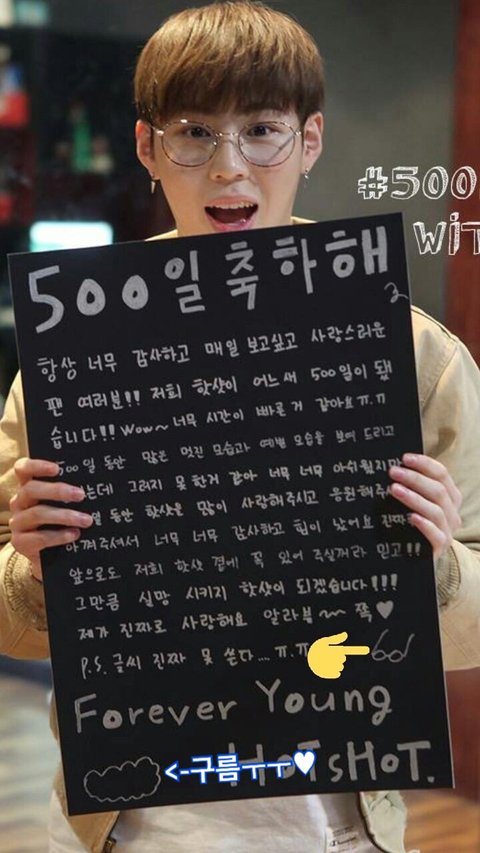 #500
WIT
500일 축하해
항상 너무 감사하고 매일 보고싶고 사랑스러운
팬 여러분!! 저희 핫샷이 어느새 500일이 됐
습니다!! Wow~ 너무 시간이 빠른거 같아요 ㅠ.ㅠ
500일 동안 많은 멋진 모습과 예쁜 모습을 보여 드리고
그러지 못한거 같아 너무 너무 아쉬웠지만
동안 핫샷을 많이 사랑해주시고 응원해주시
아껴주셔서 너무 너무 감사하고 힘이 났어요 진짜
앞으로도 저희 핫샷 곁에 꼭 있어 주실꺼라 믿고!!
그만큼 실망 시키지 핫샷이 되겠습니다!!!
제가 진짜로 사랑해요 알라븅~ 쪽♥
P.S. 글씨 진짜 못 쓴다... ㅠ.ㅠ
Forever Young
HoTsHoT.
<-구름ㅜㅜ♥